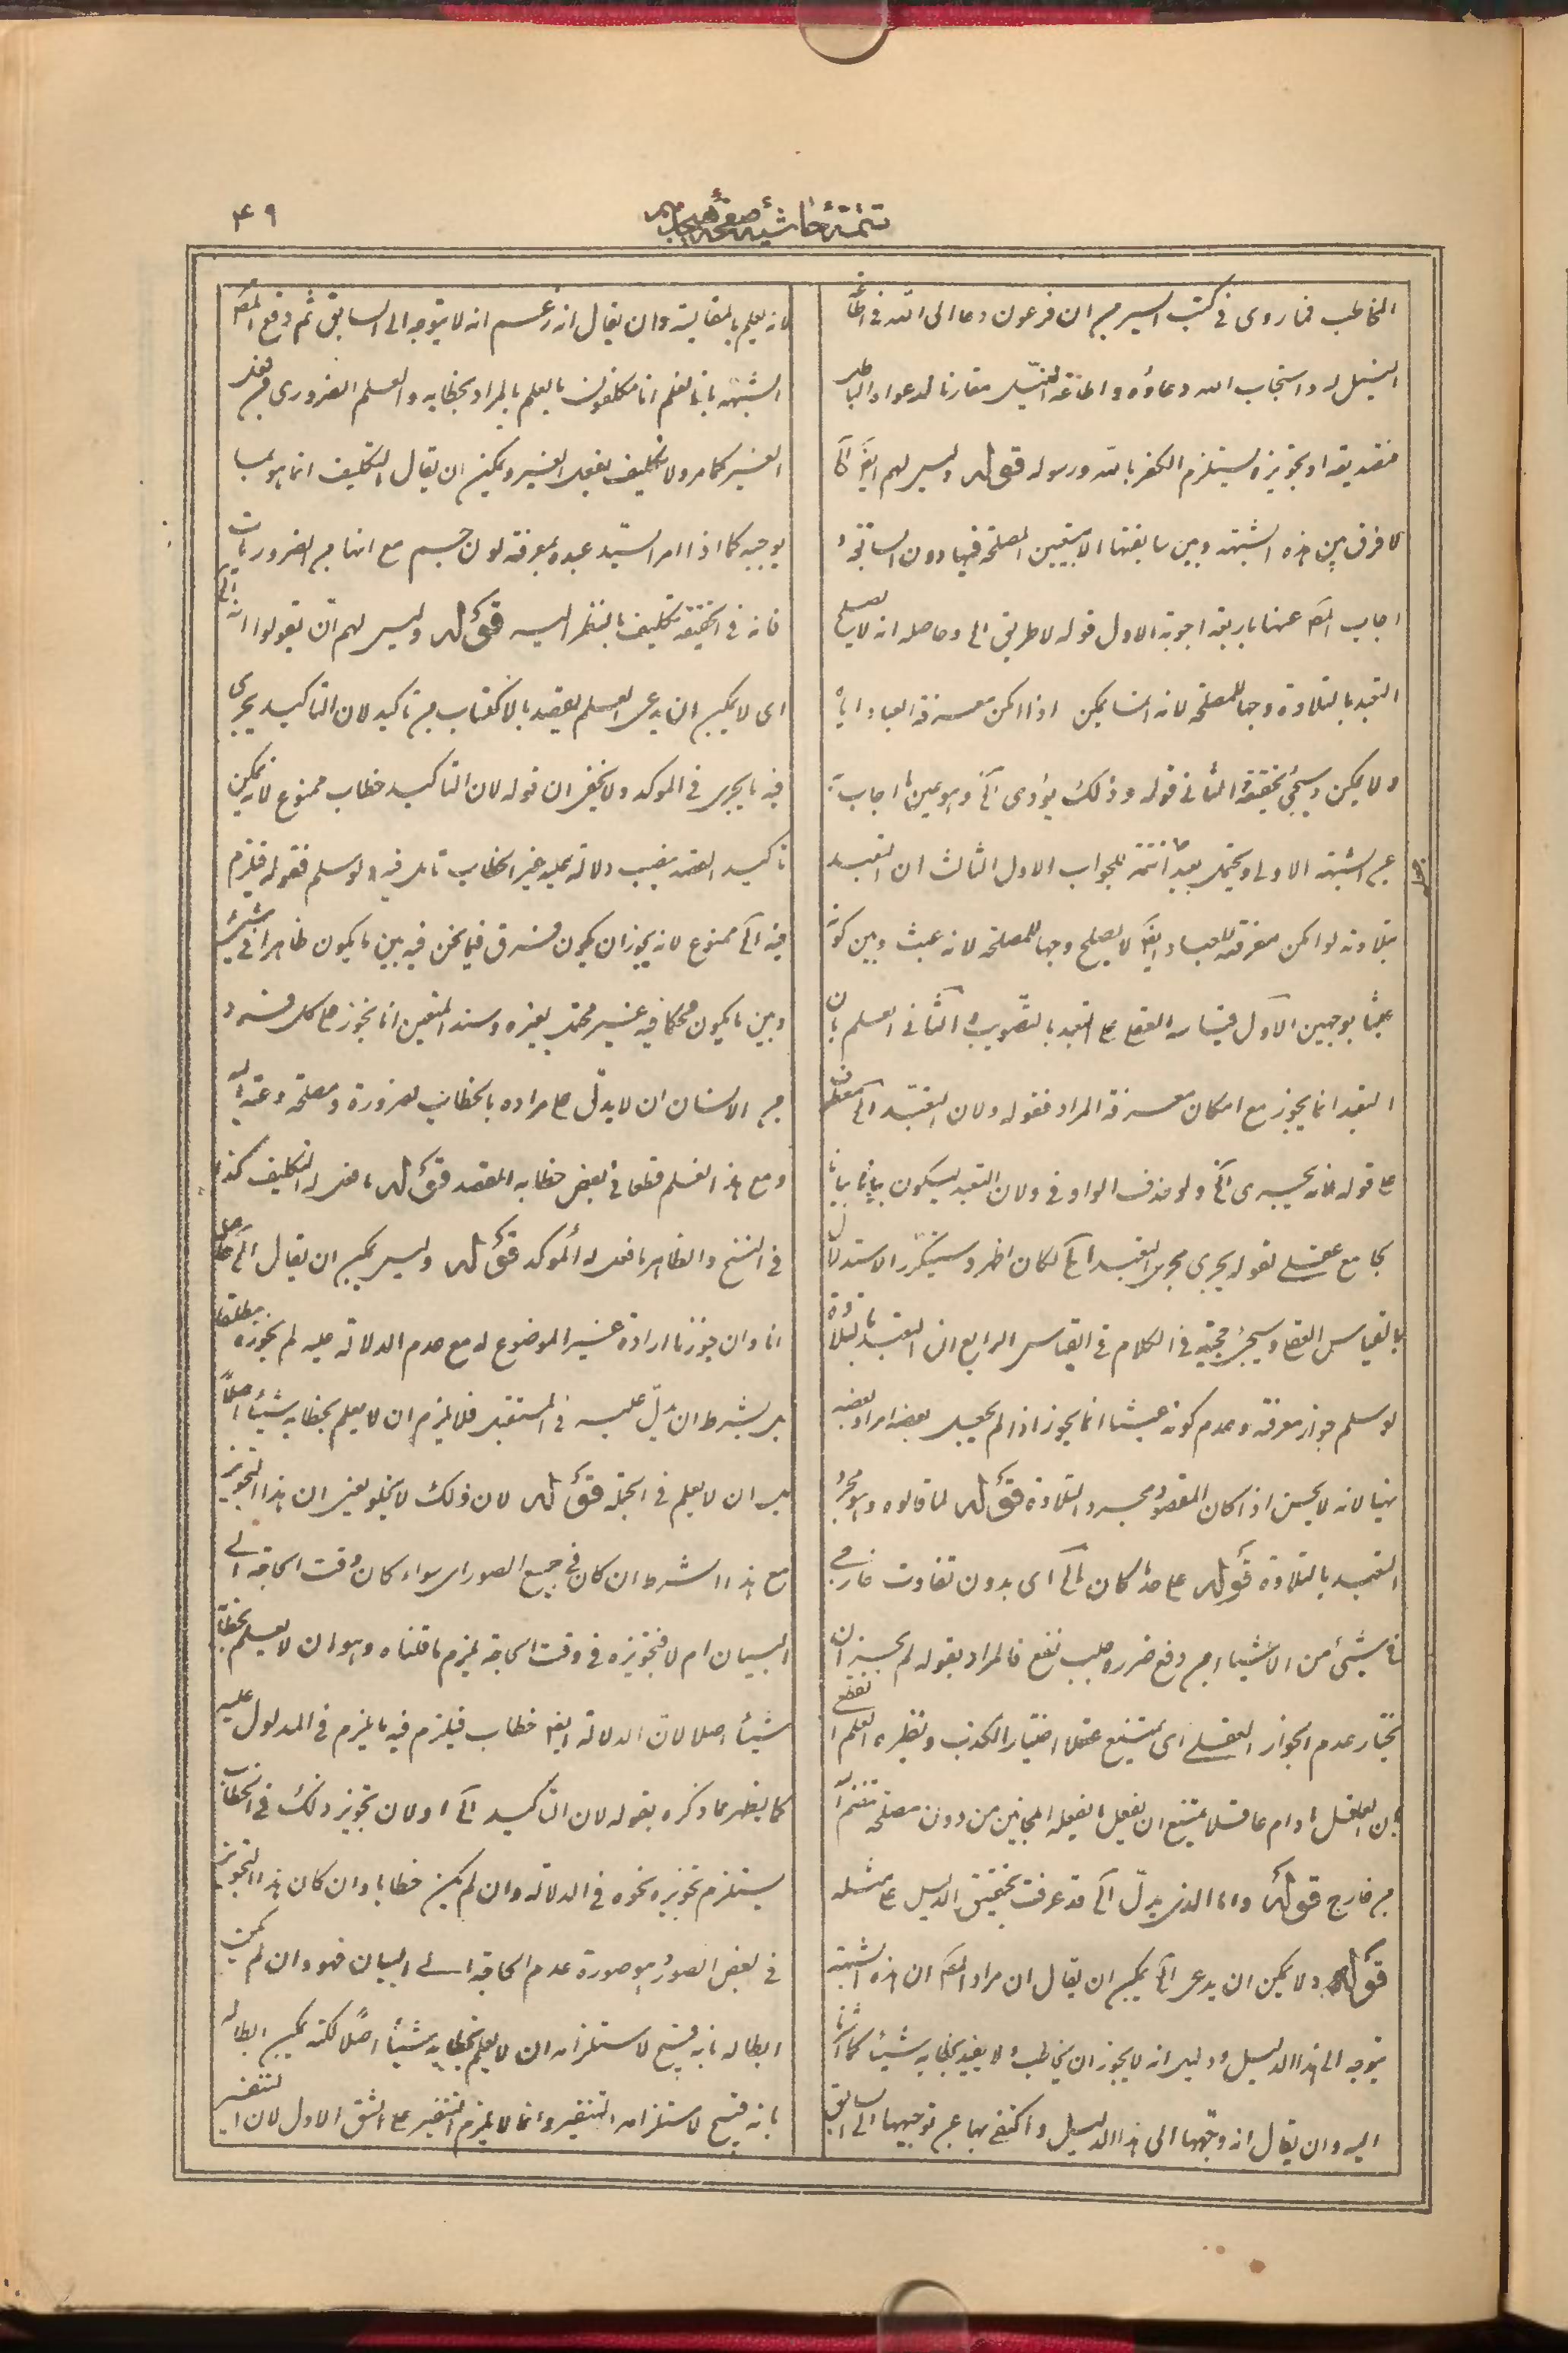 ٤٩
تتمة حاشية صفحه
المخاطب فما روى في كتب السير من ان فرعون دعا الى الله في اطاعة
النيل له واستجاب الله دعاؤه واطاعة النيل مقارنا لدعواه الباطل
فتصديقه او تجويزه يستلزم الكفر بالله ورسوله قوله وليس لهم ايضا الخ
لا فرق بين هذه الشبهة وبين سابقتها الا بتعيين المصلحة فيها دون السابقة و
اجاب المص عنها باربعة اجوبة الاول قوله لا طريق الى وحاصله انه لا يصلح
التعبد بالتلاوة وجها للمصلحة لانه انما يمكن اذا امكن معرفة العباد اياه
ولا يمكن وسيجئ تحقيقه الثاني قوله وذلك يؤدى الخ وهو عين ما اجاب به
عن الشبهة الاولى ويحتمل بعيدا تتمة للجواب الاول الثالث ان التعبد
بتلاوته لو امكن معرفته للعباد ايضا لا يصلح وجها للمصلحة لانه عبث وبين كونه
عبثا بوجهين الاول قياسه العقلى على التعبد بالتصويت الثاني العلم بان
التعبد انما يجوز مع امكان معرفة المراد فقوله ولان التعبد الخ معطوف
على قوله فانه يجرى الخ ولو حذف الواو في ولان التعبد ليكون بيانا
بجامع عقلي لقوله يجرى مجرى التعبد الخ لكان اظهر وسيتكرر الاستدلال
بالقياس العقلى وسيجئ حجيته في الكلام في القياس الرابع ان التعبد بالتلاوة
لو سلم جواز معرفته وعدم كونه عبثا انما يجوز اذا لم يجعل بعضه امرا وبعضه
نهيا لانه لا يحسن اذا كان المقصود مجرد التلاوة قوله لما قالوه وهو مجرد
التعبد بالتلاوة قوله على حد كان الخ اى بدون تفاوت خارجي
في شيئ من الاشياء من دفع ضرر وجلب نفع فالمراد بقوله لم يحسن ان
يختار عدم الجواز العقلي اى يمتنع عقلا اختيار الكذب ونظيره العلم القطعي
بان العاقل ما دام عاقلا يمتنع ان يفعل ما يفعله المجانين من دون مصلحة
من خارج قوله واما الذى يدل الخ قد عرفت تحقيق الدليل على مثله
قوله ولا يمكن ان يدعى الخ يمكن ان يقال ان مراد المص ان هذه الشبهة
يتوجه الى هذا الدليل ودليل انه لا يجوز ان يخاطب ولا يفيد بخطابه شيئا كما
اليه وان يقال انه وجهها الى هذا الدليل واكتفى بها عن توجيهها الى السابق
لانه يعلم بالمقايسة وان يقال انه زعم انه لا يتوجه الى السابق ثم دفع المص
الشبهة بانا نعلم انا مكلفون بالعلم بالمراد بخطابه والعلم الضروري من فعل
الغير كما مر ولا تكليف بفعل الغير ويمكن ان يقال التكليف انما هو بما
يوجبه كما اذا امر السيد عبده بمعرفة لون جسم مع انها من الضروريات
فانه في الحقيقة تكليف بالنظر اليه قوله وليس لهم ان يقولوا انه الخ
اى لا يمكن ان يدعى العلم بقصد بالاكتساب من تاكيد لان التاكيد يجرى
فيه ما يجرى في الموكد ولا يخفى ان قوله لان التاكيد خطاب ممنوع لانه يمكن
تاكيد القصد بنصب دلالة عليه غير الخطاب تامل فيه ولو سلم فقوله فيلزم
فيه الخ ممنوع لانه يجوز ان يكون فرق فيما نحن فيه بين ما يكون ظاهرا في شيئ
وبين ما يكون محكما فيه غير محتمل لغيره وسند المنعين انا نجوز على كل فرد
من الانسان ان لا يدل على مراده بالخطاب لضرورة ومصلحة داعية اليه
ومع هذا نعلم قطعا في بعض خطابه المقصد قوله ما فعل له التكليف كذا
في النسخ والظاهر ما فعل له الموكد قوله وليس يمكن ان يقال الخ حاصله
انا وان جوزنا ارادة غير الموضوع له مع عدم الدلالة عليه لم نجوزه مطلقا
بل بشرط ان يدل عليه في المستقبل فلا يلزم ان لا يعلم بخطابه شيئا اصلا
بل ان لا يعلم في الجملة قوله لان ذلك لا يخلو يعني ان هذا التجويز
مع هذا الشرط ان كان في جميع الصور اى سواء كان وقت الحاجة الى
البيان ام لا فتجويزه في وقت الحاجة يلزم ما قلناه وهو ان لا يعلم بخطابه
شيئا اصلا لان الدلالة ايضا خطاب فيلزم فيه ما يلزم في المدلول عليه
كما يظهر مما ذكره بقوله لان التاكيد الخ او لان تجويز ذلك في الخطاب
يستلزم تجويزه نحوه في الدلالة وان لم يكن خطابا وان كان هذا التجويز
في بعض الصور وهو صورة عدم الحاجة الى البيان فهو وان لم يمكن
ابطاله بانه قبيح لاستلزامه ان لا يعلم بخطابه شيئا اصلا لكنه يمكن ابطاله
بانه قبيح لاستلزامه التنفير وانما لا يلزم التنفير على الشق الاول لان التنفير